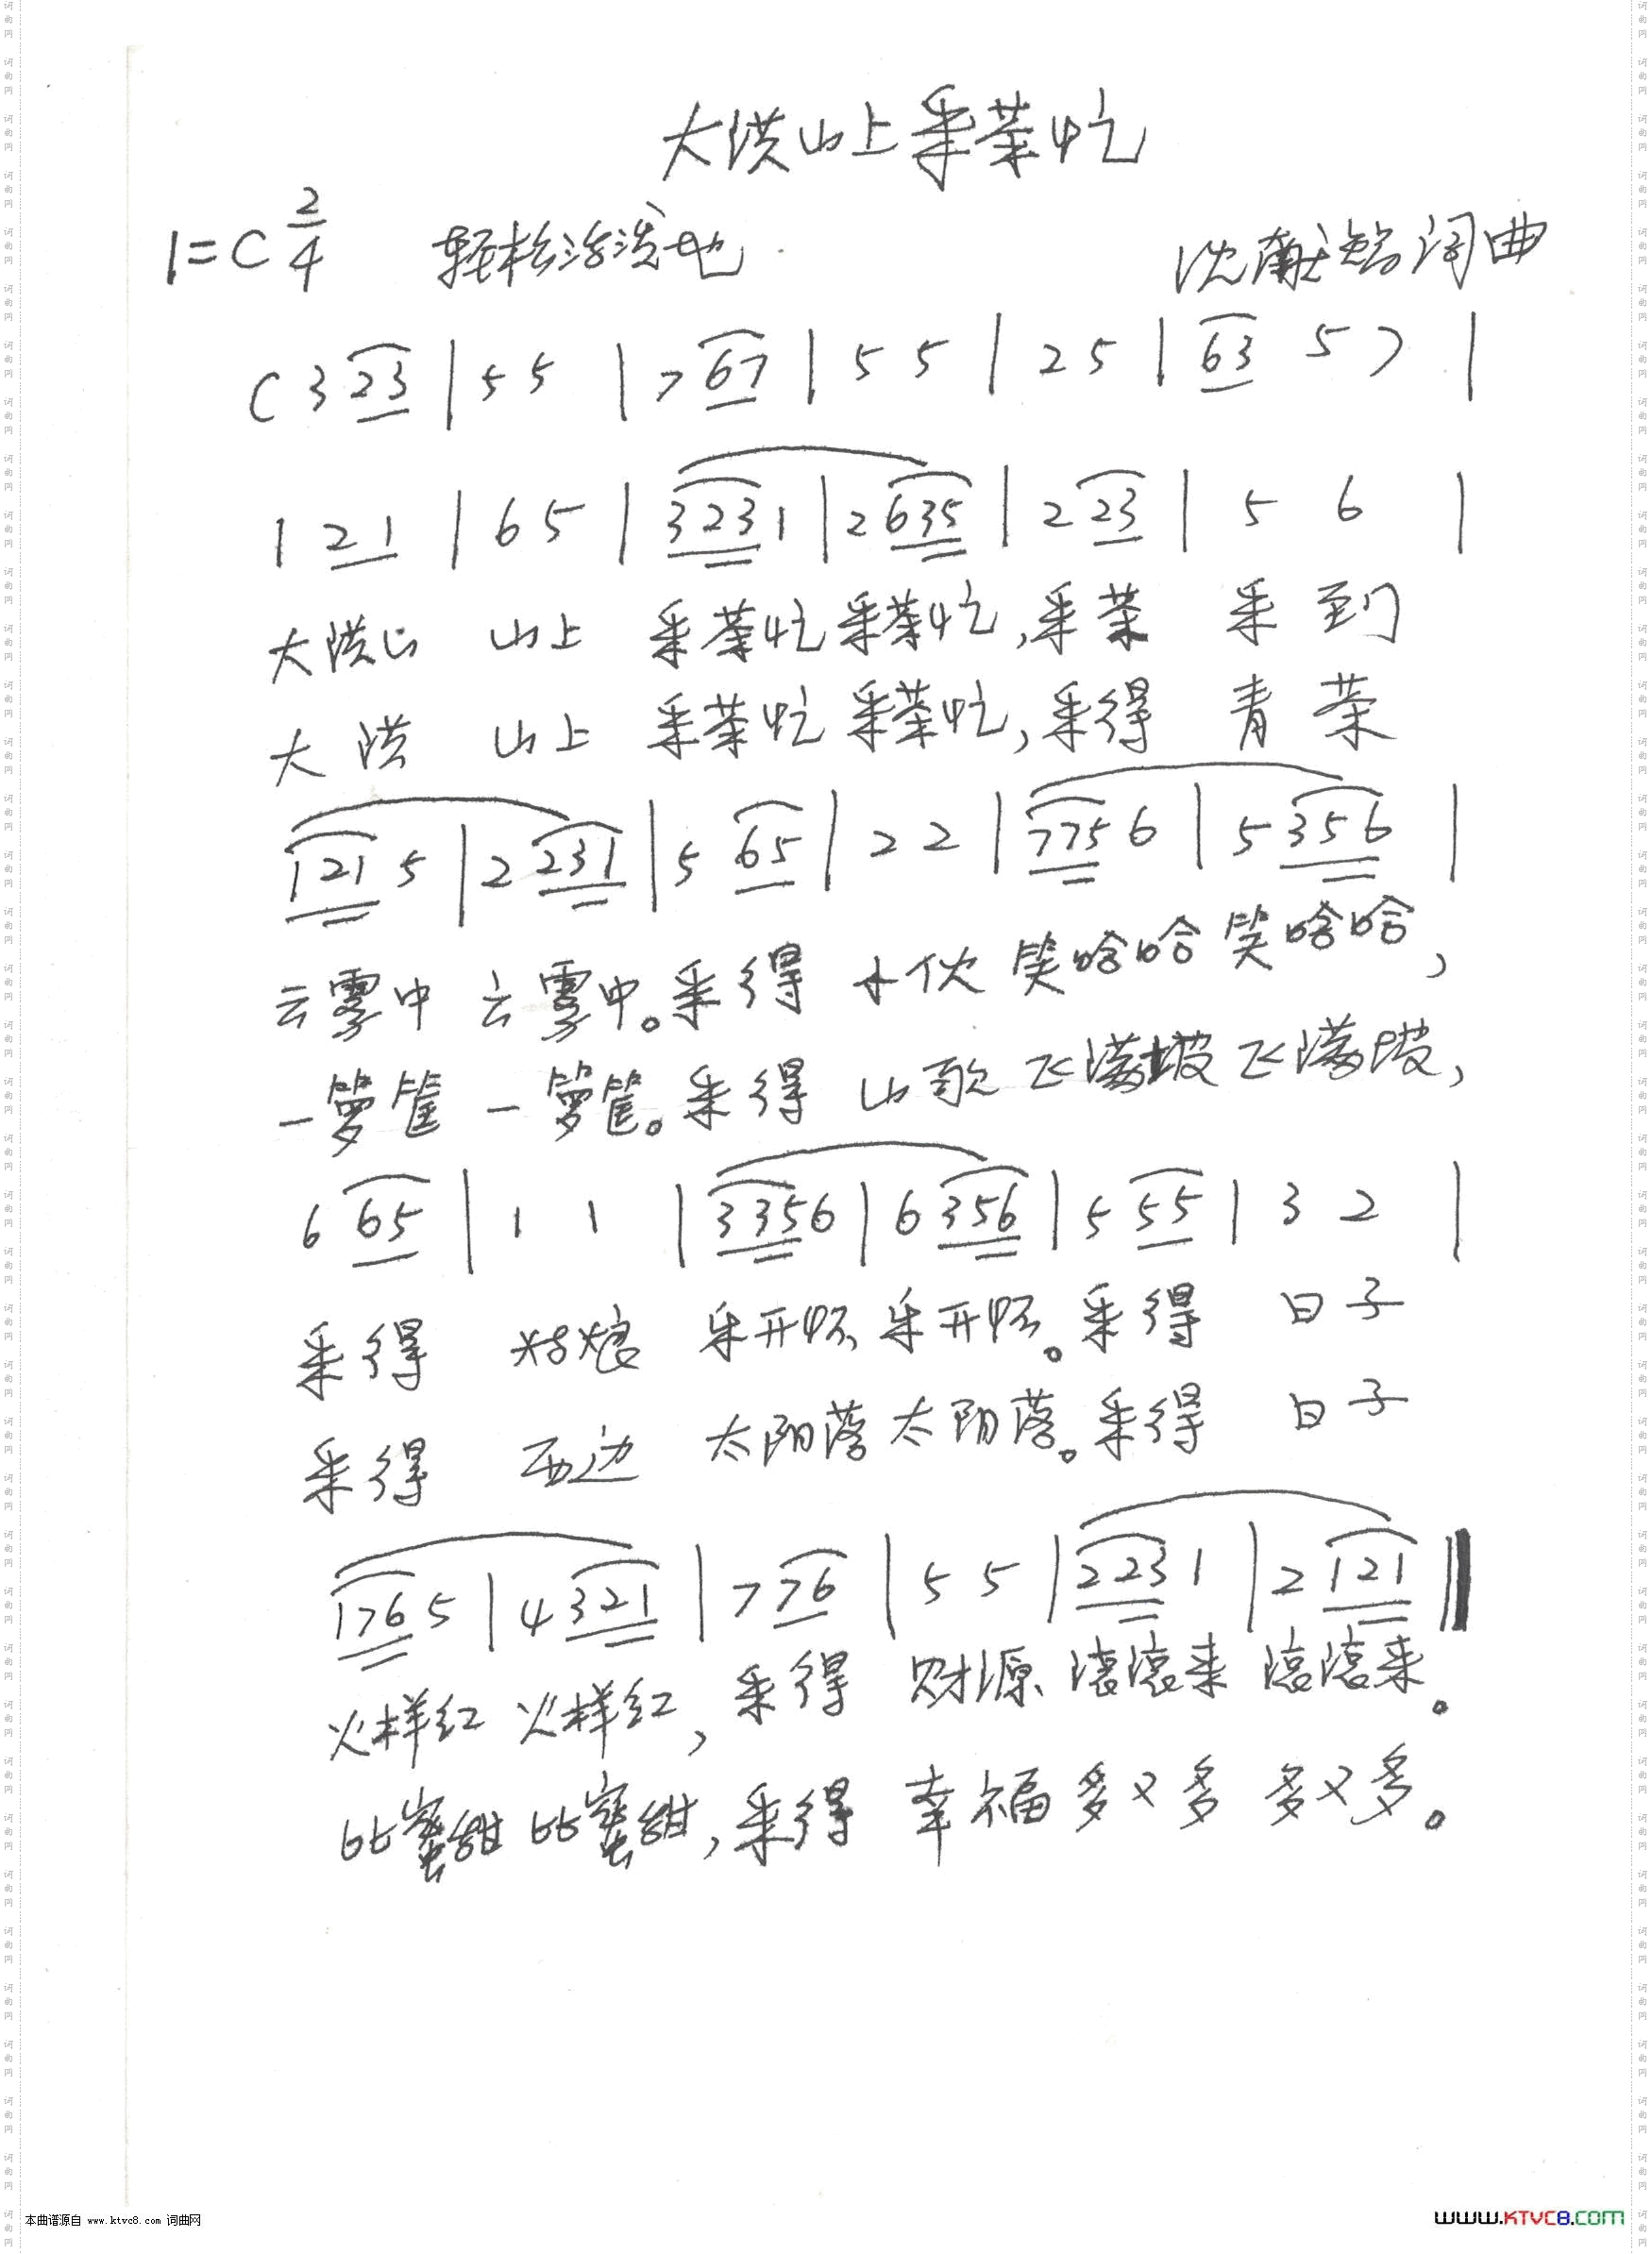 大洪山上采菜忙
1=C 2/4 轻松活泼地 沈献 词曲
( 3 23 | 5 5 | 7 67 | 5 5 | 2 5 | 63 5 ) |
1 21 | 6 5 | 323 1 | 2 635 | 2 23 | 5 6 |
大洪山 山上 采菜忙采菜忙,采菜 采到
大洪 山上 采菜忙采菜忙,采得 青菜
121 5 | 2 231 | 5 65 | 2 2 | 775 6 | 5 356 |
云雾中云雾中。采得 小伙笑哈哈笑哈哈,
一箩筐一箩筐。采得 山歌飞满坡飞满坡,
6 65 | 1 1 | 335 6 | 6 356 | 5 55 | 3 2 |
采得 姑娘 乐开怀乐开怀。采得 日子
采得 西边 太阳落太阳落。采得 日子
176 5 | 4 321 | 7 76 | 5 5 | 223 1 | 2 121 ‖
火样红火样红,采得 财源滚滚来滚滚来。
比蜜甜比蜜甜,采得 幸福多又多多又多。
本曲谱源自 www.ktvc8.com 词曲网
www.KTVC8.COM